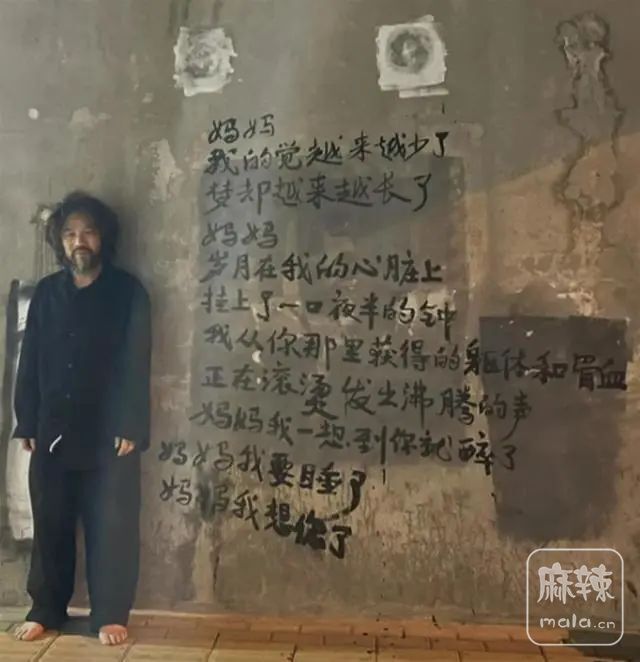 妈妈
我的觉越来越少了
梦却越来越长了
妈妈
岁月在我的心脏上
挂上了一口夜半的钟
我从你那里获得的躯体和骨血
正在滚烫发出沸腾的声
妈妈我一想到你就醉了
妈妈我要睡了
妈妈我想你了
麻辣
mala.cn